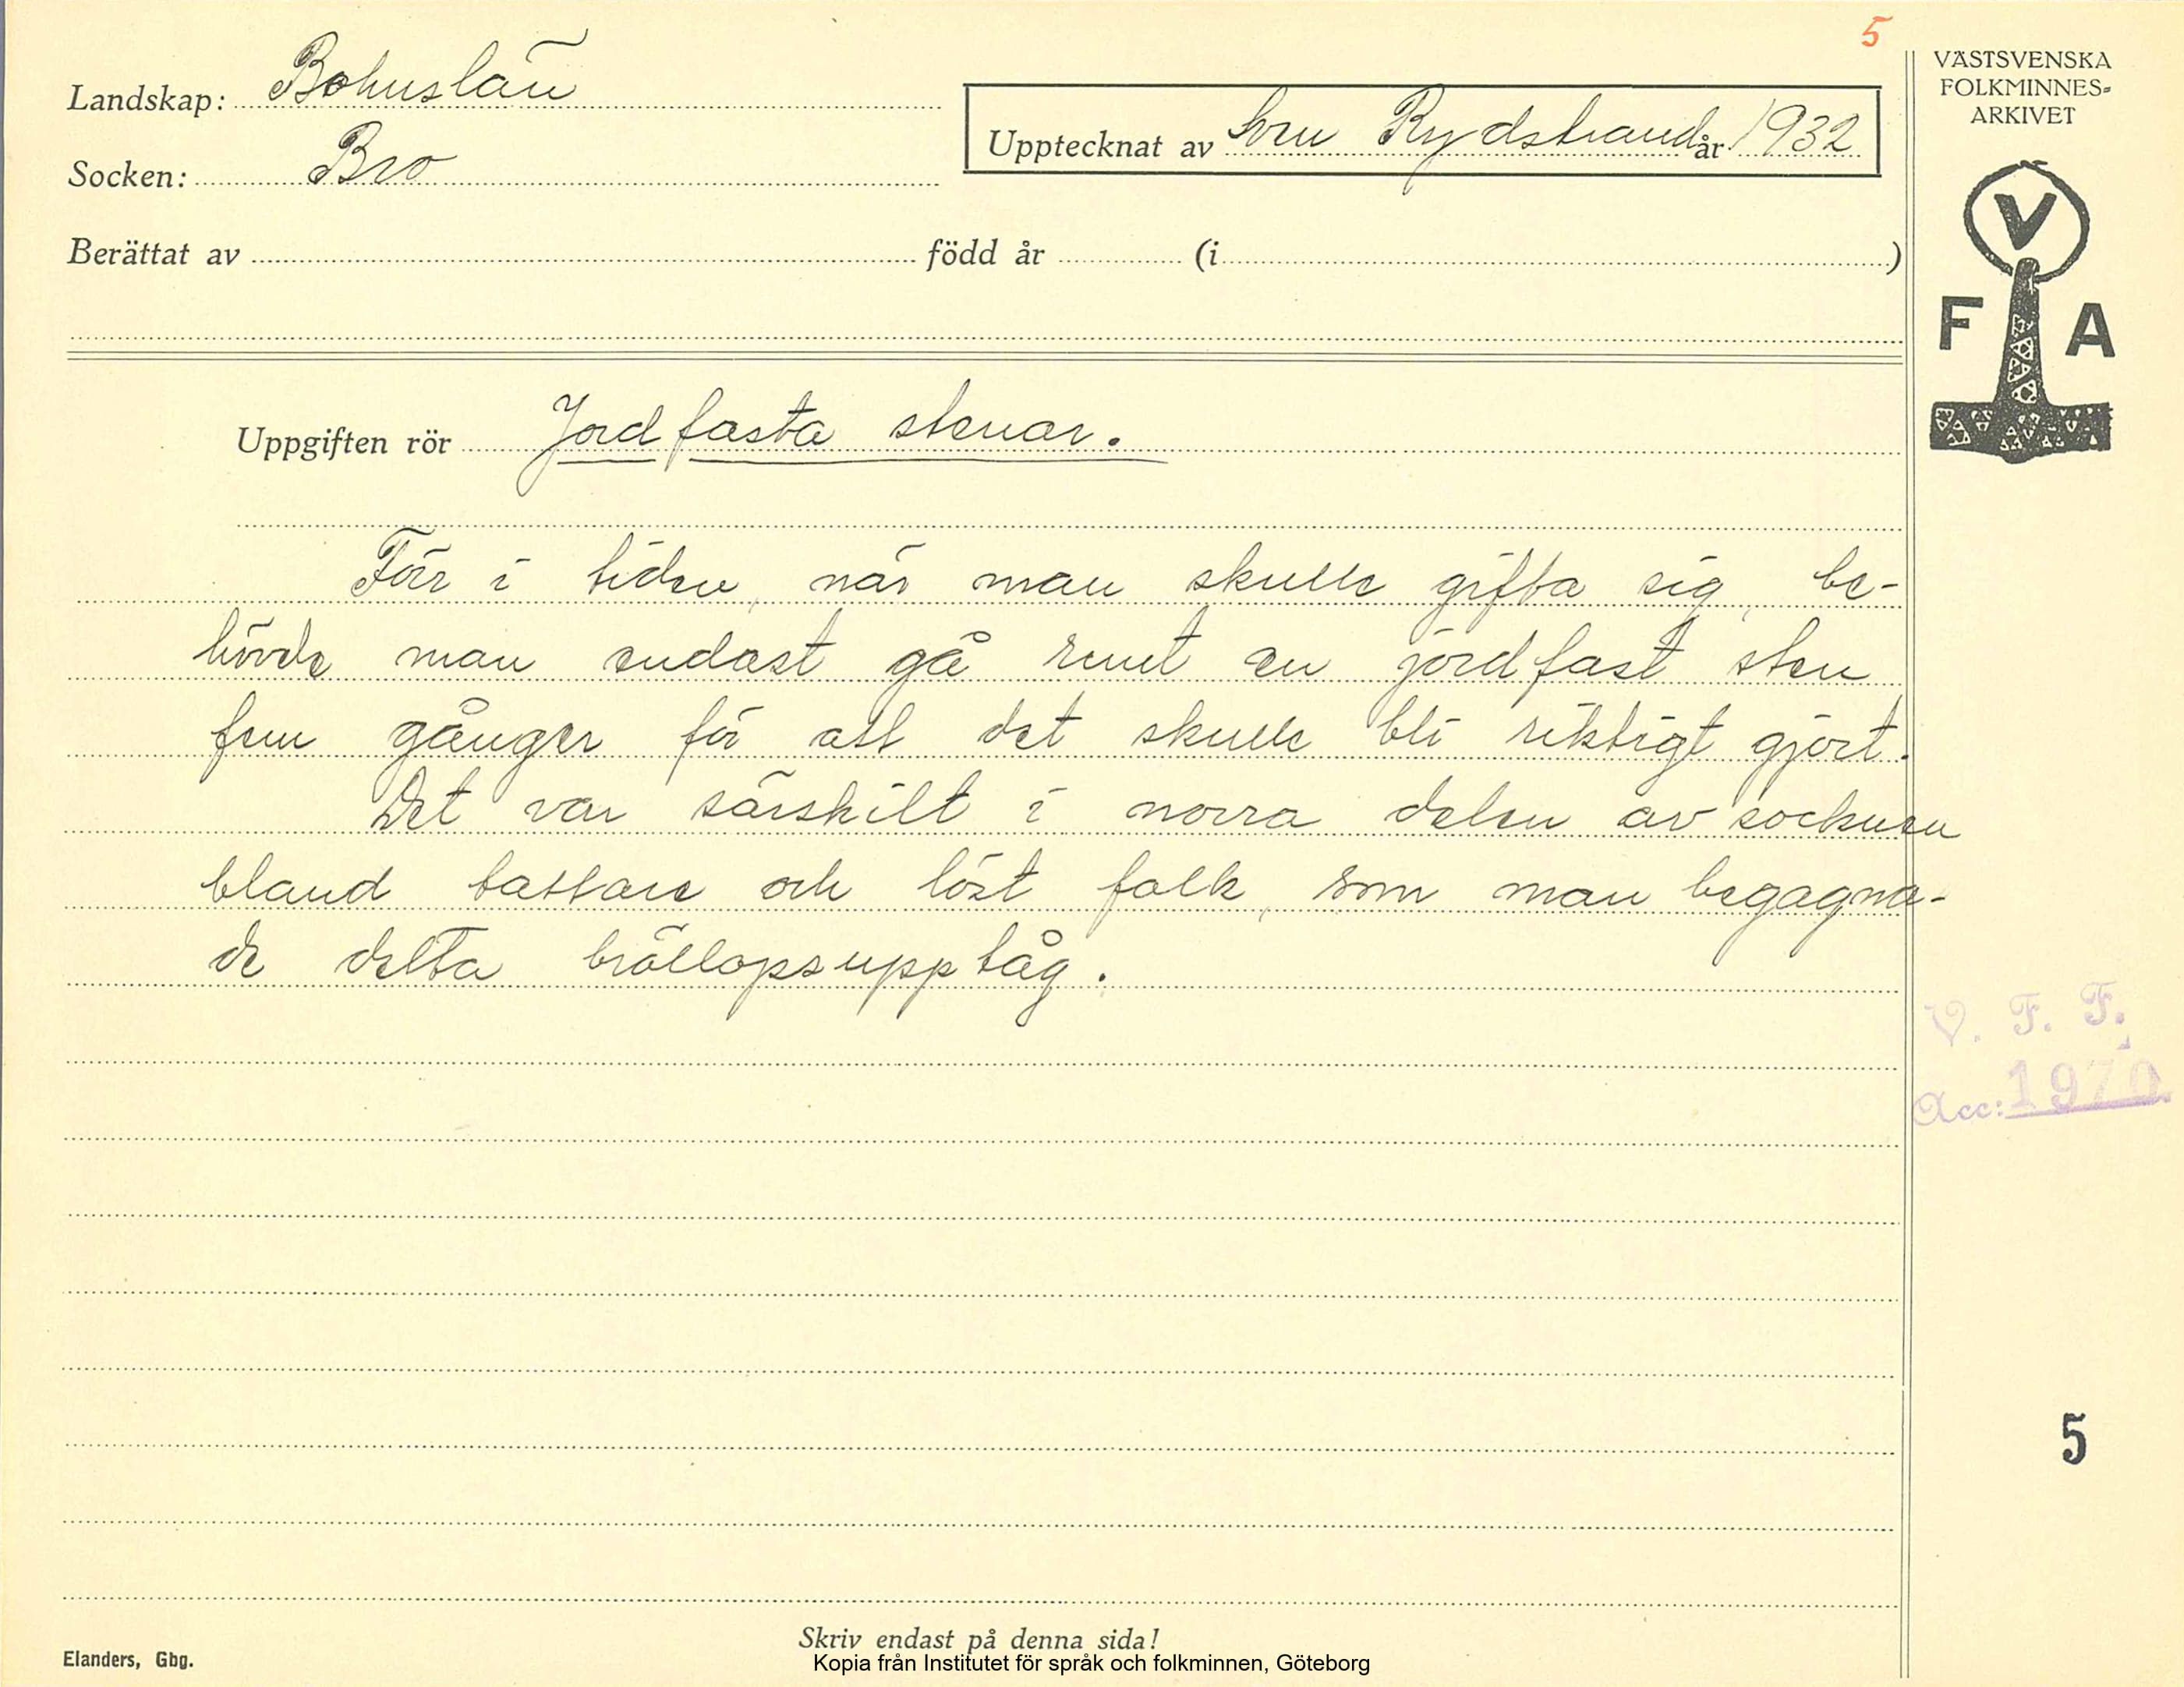 5
VÄSTSVENSKA
FOLKMINNES-
ARKIVET
Landskap: Bohuslän
Upptecknat av Sven Rydstrand år 1932
Socken: Bro
Berättat av född år (i )
V
F A
Uppgiften rör Jordfasta stenar.
Förr i tiden, när man skulle gifta sig, be-
hövde man endast gå runt en jordfast sten
fem gånger för att det skulle bli riktigt gjort.
Det var särskilt i norra delen av socknen
bland tattare och löst folk, som man begagna-
de detta bröllopsupptåg.
V. F. F.
Acc: 1970
5
Skriv endast på denna sida!
Elanders, Gbg.
Kopia från Institutet för språk och folkminnen, Göteborg